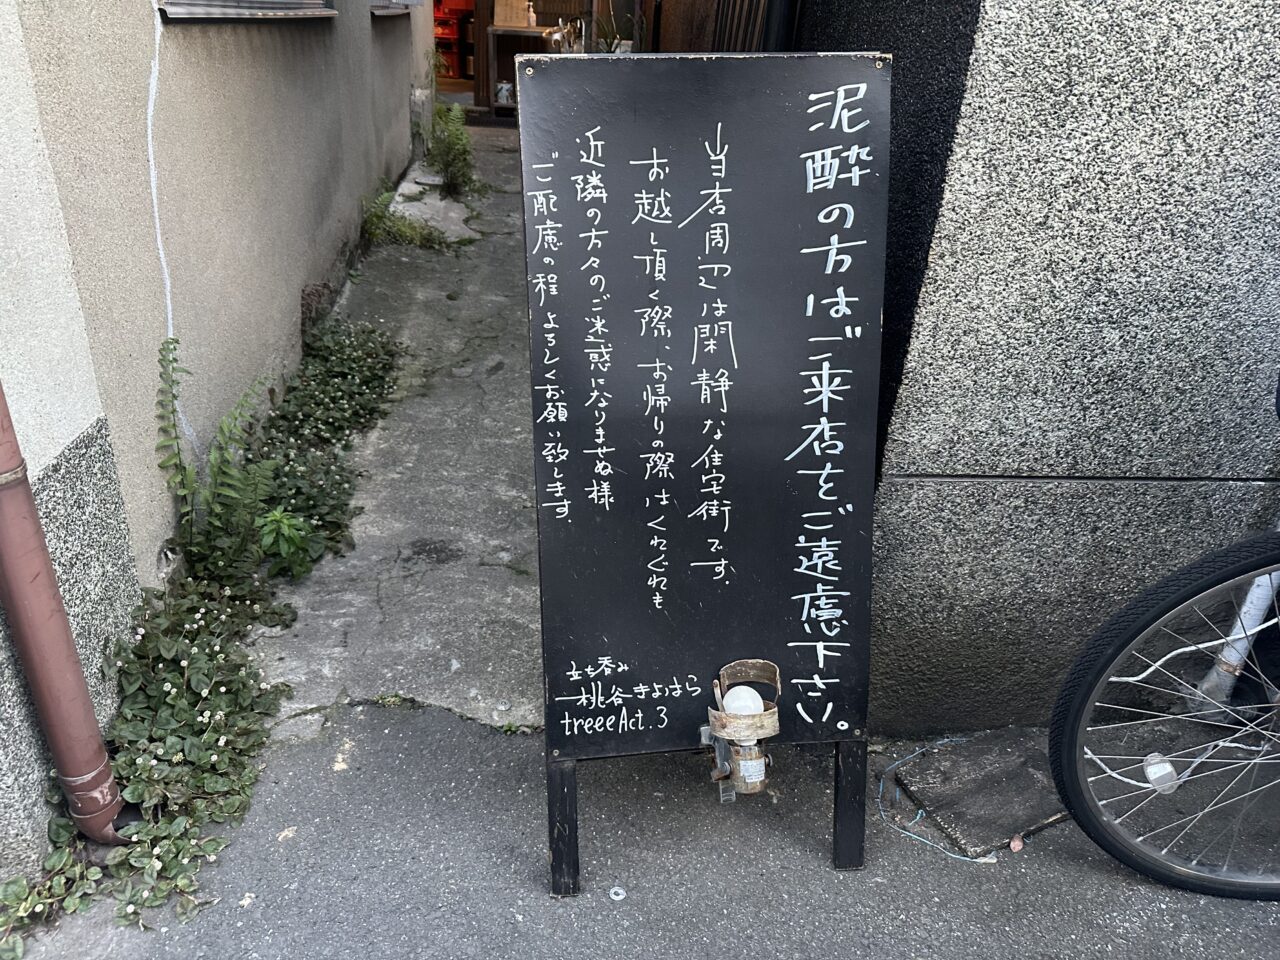 泥酔の方はご来店をご遠慮下さい。
当店周辺は閑静な住宅街です.
お越し頂く際、お帰りの際はくれぐれも
近隣の方々のご迷惑になりませぬ様
ご配慮の程よろしくお願い致します.
立ち呑み
桃谷きよはら
treeeAct.3